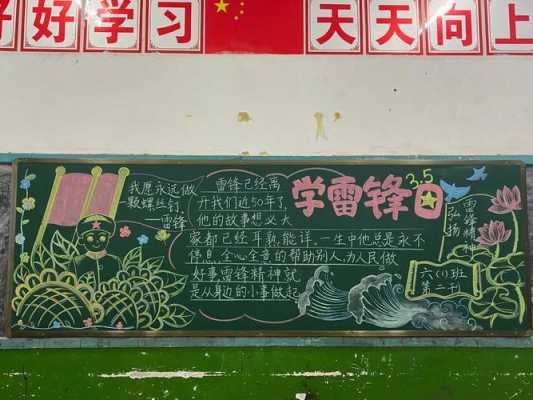 好好学习
天天向上
我愿永远做
一颗螺丝钉
—雷锋
雷锋已经离
开我们近50年了,
他的故事想必大
家都已经耳熟能详。一生中他总是永不
停息、全心全意的帮助别人,为人民做
好事雷锋精神就
是从身边的小事做起
学雷锋日
3.5
弘扬
雷锋精神
六(1)班
第二刊